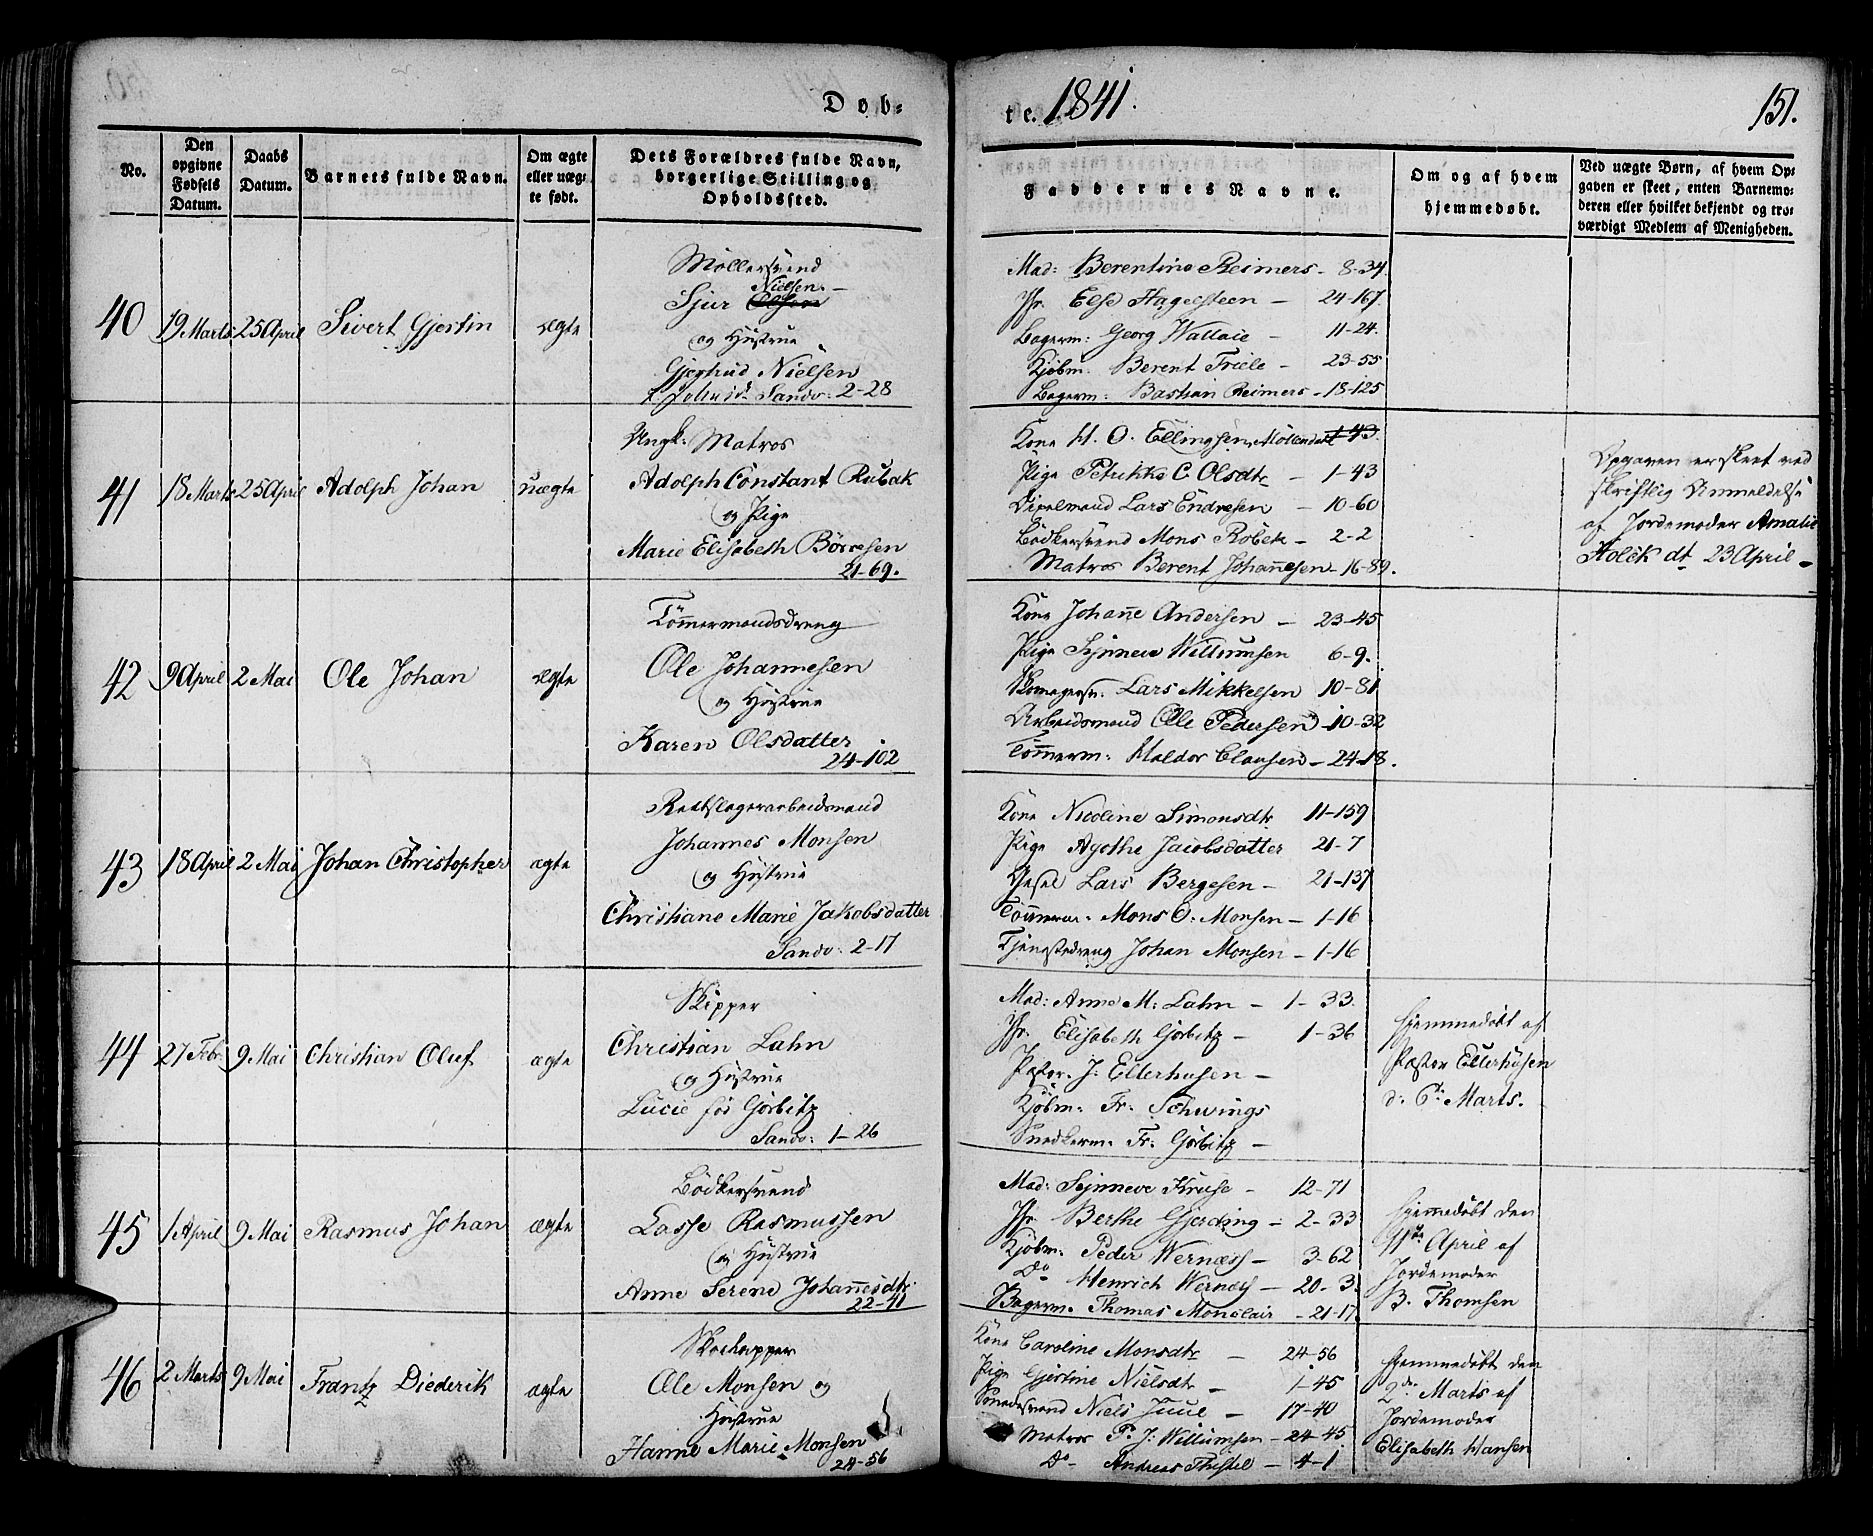 Døb-
te. 1841.
151.
No.
Den opgivne Fødsels Datum.
Daabs Datum.
Barnets fulde Navn.
Om ægte eller uæg-te født.
Dets Forældres fulde Navn, borgerlige Stilling og Opholdssted.
Faddernes Navne.
Om og af hvem hjemmedøbt.
Ved uægte Børn, af hvem Op-gaven er skeet, enten Barnemo-deren eller hvilket bekjendt og tro-værdigt Medlem af Menigheden.
40 19 Marts 25 April Sivert Gjertin ægte
Møllersvend
Nielsen -
Sjur Olsen
og Hustrue
Gjertrud Nielsen
Sandv: 2-28
Mad: Berentine Reimers - 8-34
Jfr. Else Hagelsteen - 24-167
Bagerm: Georg Wallace - 11-24.
Kjøbm. Berent Friele - 23-55
Bagerm: Bastian Reimers - 18-125
41 18 Marts 25 April Adolph Johan uægte
Ungk: Matros
Adolph Constant Rubak
og Pige
Marie Elisabeth Börresen
21-69.
Kone H. O. Ellingsen, Möllendal 1-43.
Pige Petrikke C. Olsdtr - 1-43
Lars Endresen - 10-60
Bödkersvend Mons Robek - 2-2
Matros Berent Johannesen - 16-89.
Opgaven er skeet ved
skriftlig Anmeldelse
af Jordemoder Amalie
Holck dt 23 April -
42 9 April 2 Mai Ole Johan ægte
Tömmermandsdreng
Ole Johannesen
og Hustrue
Karen Olsdatter
24-102
Kone Johane Andersen - 23-45
Pige Synneve Willumsen 6-9.
Skomagersv. Lars Mikkelsen 10-81
Arbeidsmand Ole Pedersen - 10-32
Tömmerm: Haldor Clausen - 24-18.
43 18 April 2 Mai Johan Christopher ægte
Rebslagerarbeidsmand
Johannes Monsen
og Hustrue
Christiane Marie Jakobsdatter
Sandv: 2-17
Kone Nicoline Simonsdtr 11-159
Pige Agothe Jacobsdatter 21-7
Lars Bergesen - 21-137
Tömmerm. Mons O. Monsen - 1-16
Tjenestedreng Johan Monsen - 1-16
44 27 Febr. 9 Mai Christian Oluf ægte
Skipper
Christian Lahn
og Hustrue
Lucie fød Görbitz
Sandv: 1-26
Mad: Anne M: Lahn - 1-33.
Jfr. Elisabeth Görbitz - 1-36
Pastor. J: Ellerhusen -
Kjöbm: Fr: Schwings
Snedkerm: Fr: Görbitz -
Hjemmedöbt af
Pastor Ellerhusen
d: 6te Marts.
45 1 April 9 Mai Rasmus Johan ægte
Bödkersvend
Lasse Rasmussen
og Hustrue
Anne Serene Johannesdtr.
22-41
Mad: Synneve Kruse - 12-71
Jfr. Berthe Gjerding - 2-33
Kjöbm. Peder Wernæss - 3-62
Do Henrich Wernæss - 20-3.
Bagerm. Thomas Monclair - 21-17.
Hjemmedöbt den
11te April af
Jordemoder
B. Thomsen
46 2 Marts 9 Mai Frantz Diederik ægte
Ole Monsen og
Hustrue
Hanne Marie Monsen
24-56
Kone Caroline Monsdtr - 24-56
Pige Gjertine Nielsdtr - 1-45
Niels Juul - 17-40
Matros P. J: Willumsen - 24-45
Do- Andreas Thistel - 4-1
Hjemmedöbt den
2den Marts af
Jordemoder
Elisabeth Hansen